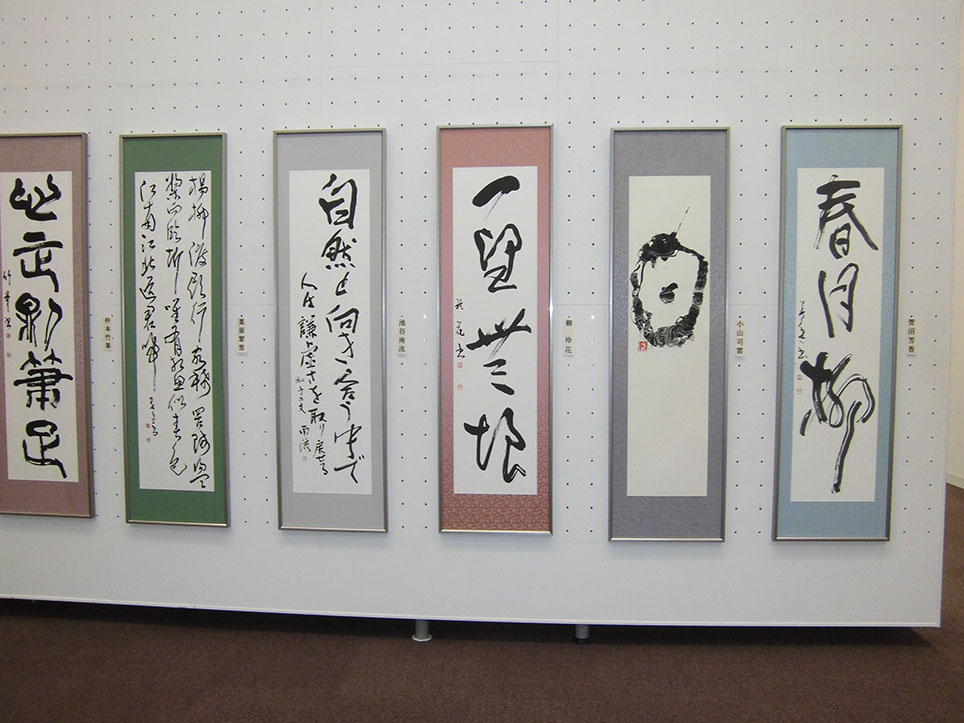 菅沼芳香
春月柳
小山司雲
柳 玲花
一望無垠
池谷南流
自然と向き合う中で
人は謙虚さを取り戻せる
南流
楊柳渡頭行客稀罟師盪
槳向臨圻唯有相思似春色
江南江北送君帰
心正則筆正